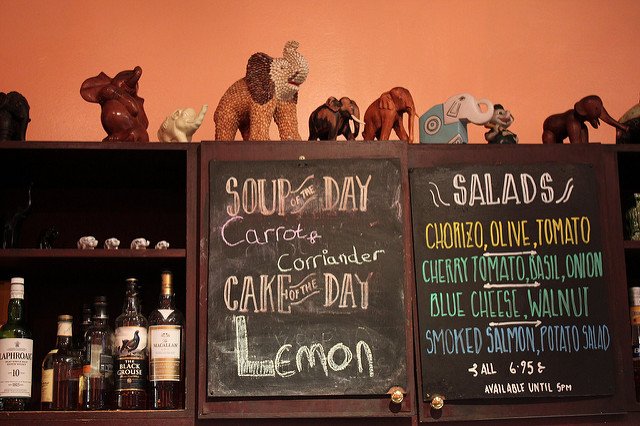 SOUP OF THE DAY
Carrot &
Corriander
CAKE OF THE DAY
Lemon
SALADS
CHORIZO, OLIVE, TOMATO
CHERRY TOMATO, BASIL, ONION
BLUE CHEESE, WALNUT
SMOKED SALMON, POTATO SALAD
ALL 6.95
AVAILABLE UNTIL 5PM
LAPHROAIG
10
THE
BLACK
GROUSE
MACALLAN